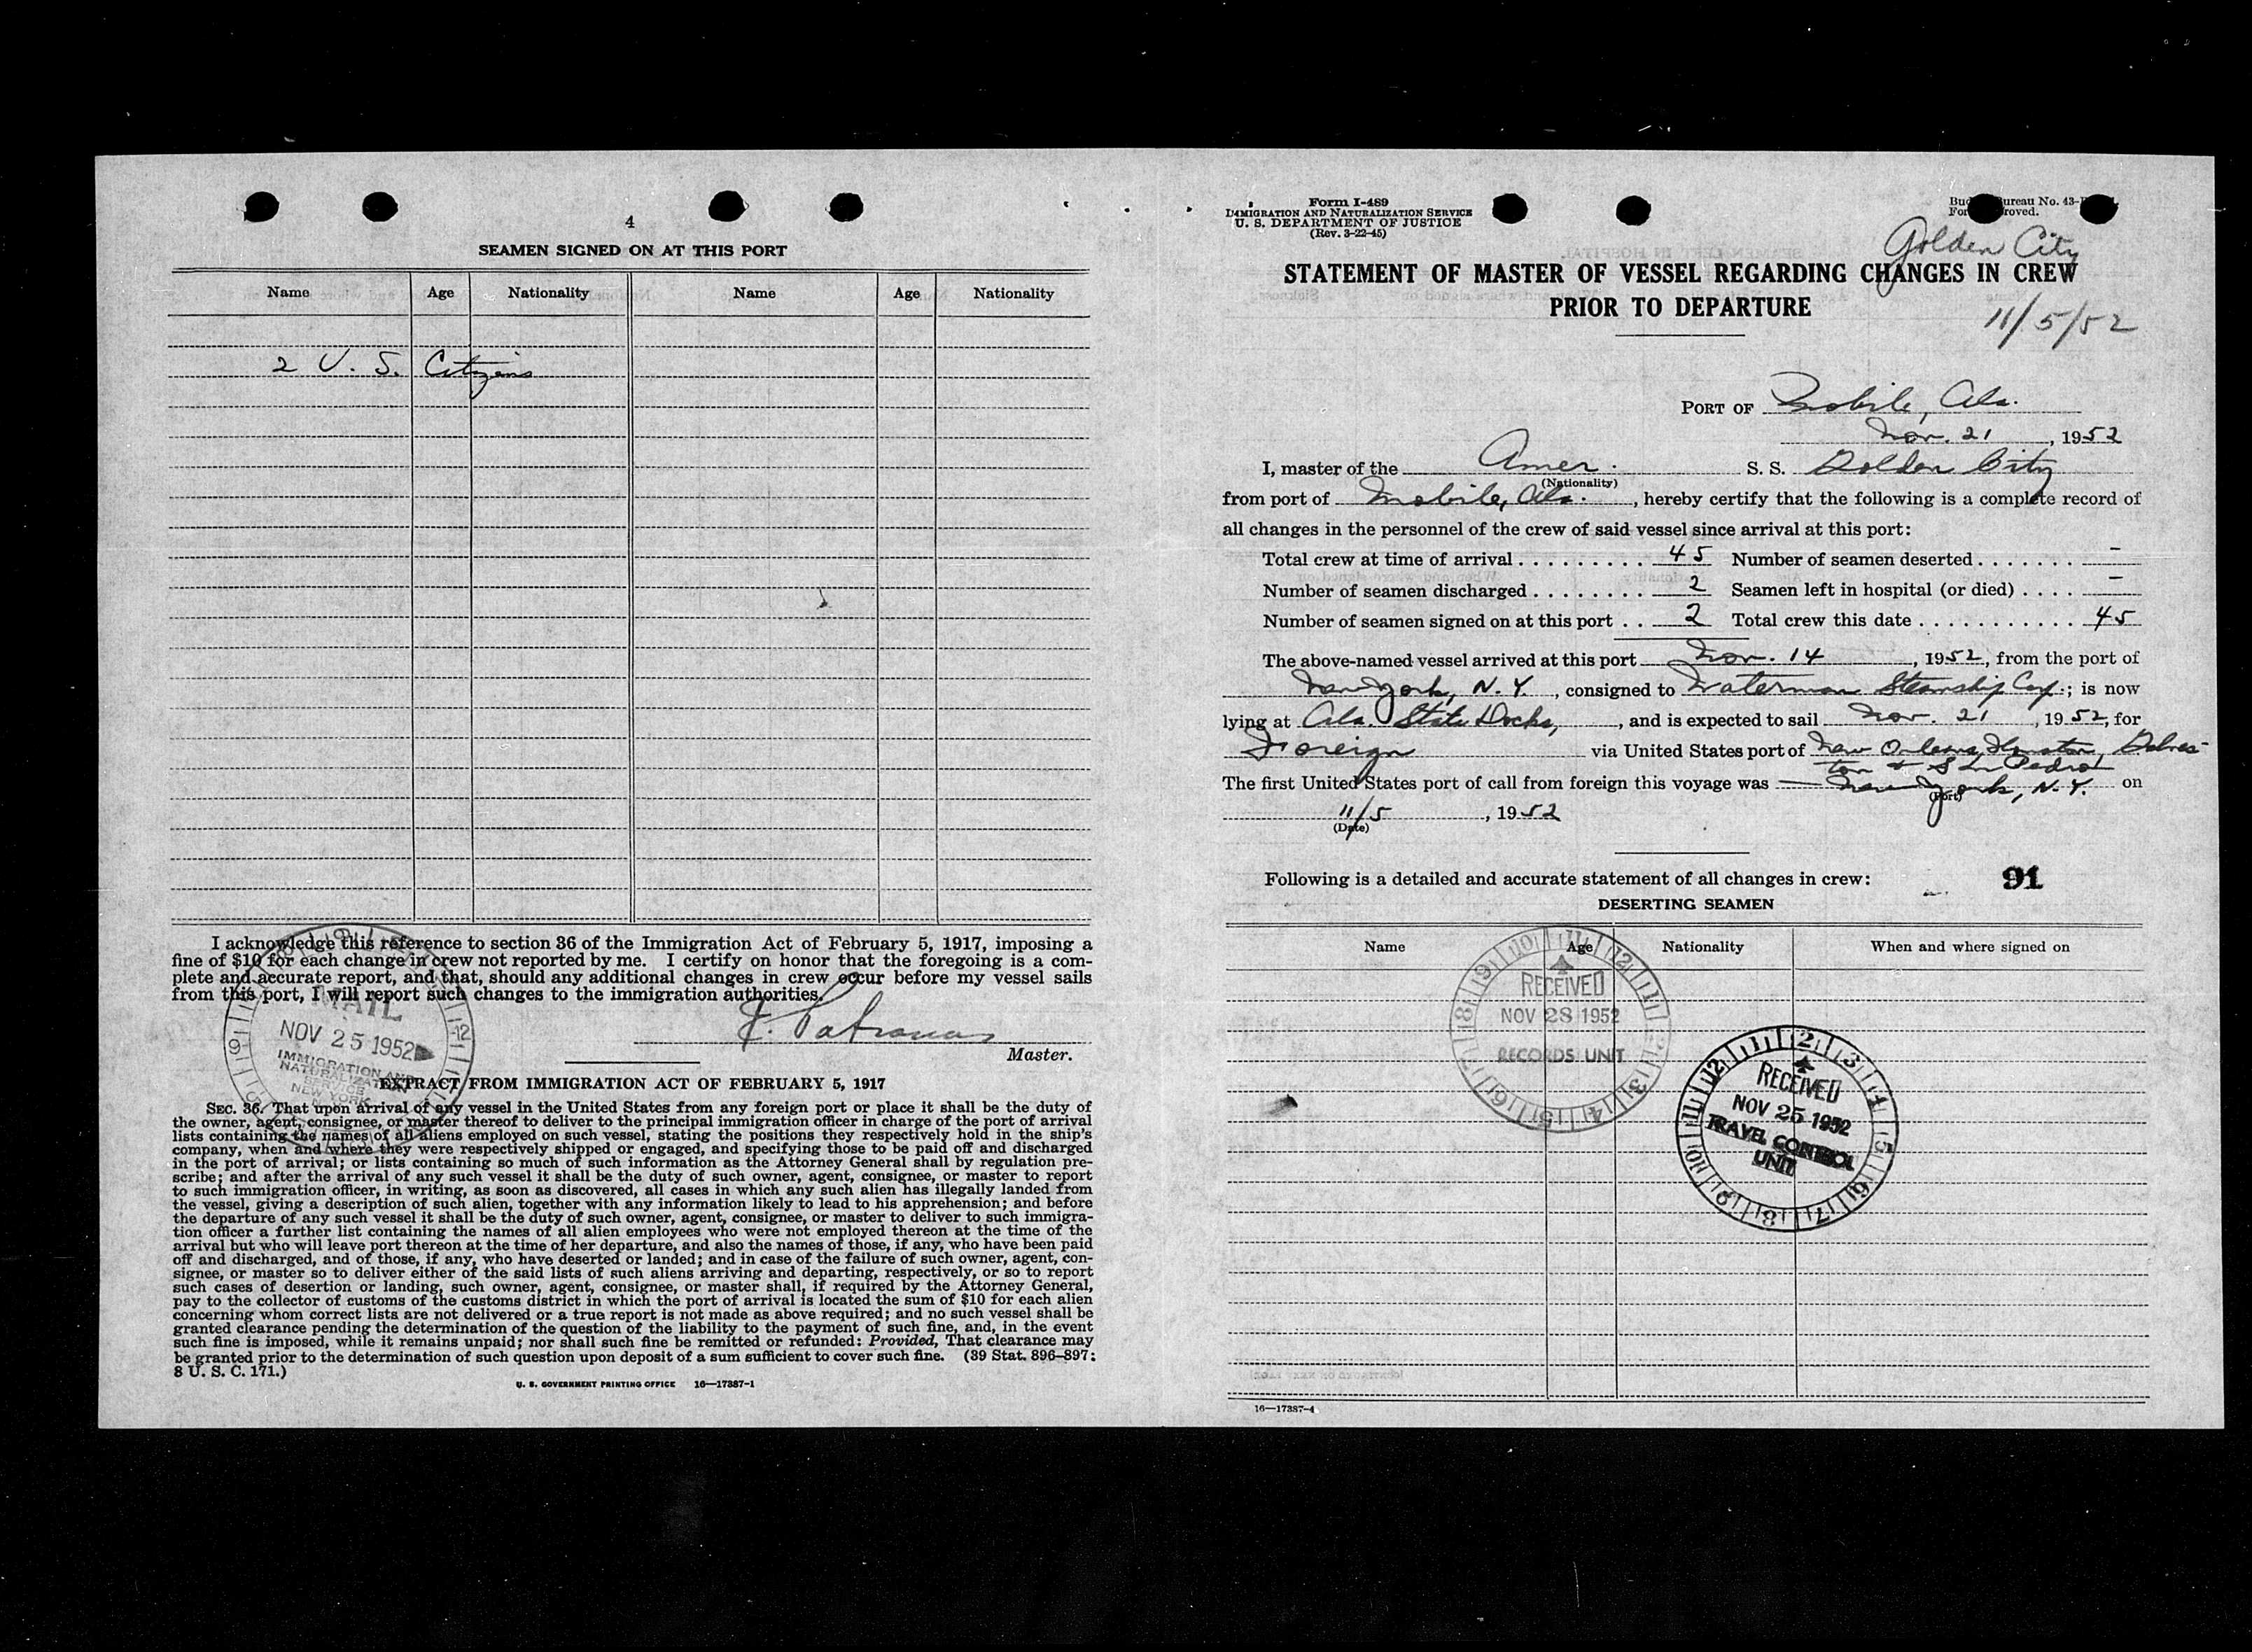 4
SEAMEN SIGNED ON AT THIS PORT
Name Age Nationality Name Age Nationality
2 U. S. Citizens
I acknowledge this reference to section 36 of the Immigration Act of February 5, 1917, imposing a
fine of $10 for each change in crew not reported by me. I certify on honor that the foregoing is a com-
plete and accurate report, and that, should any additional changes in crew occur before my vessel sails
from this port, I will report such changes to the immigration authorities.
Master.
MAIL
NOV 25 1952
IMMIGRATION AND
NATURALIZATION
SERVICE
NEW YORK
EXTRACT FROM IMMIGRATION ACT OF FEBRUARY 5, 1917
SEC. 36. That upon arrival of any vessel in the United States from any foreign port or place it shall be the duty of
the owner, agent, consignee, or master thereof to deliver to the principal immigration officer in charge of the port of arrival
lists containing the names of all aliens employed on such vessel, stating the positions they respectively hold in the ship's
company, when and where they were respectively shipped or engaged, and specifying those to be paid off and discharged
in the port of arrival; or lists containing so much of such information as the Attorney General shall by regulation pre-
scribe; and after the arrival of any such vessel it shall be the duty of such owner, agent, consignee, or master to report
to such immigration officer, in writing, as soon as discovered, all cases in which any such alien has illegally landed from
the vessel, giving a description of such alien, together with any information likely to lead to his apprehension; and before
the departure of any such vessel it shall be the duty of such owner, agent, consignee, or master to deliver to such immigra-
tion officer a further list containing the names of all alien employees who were not employed thereon at the time of the
arrival but who will leave port thereon at the time of her departure, and also the names of those, if any, who have been paid
off and discharged, and of those, if any, who have deserted or landed; and in case of the failure of such owner, agent, con-
signee, or master so to deliver either of the said lists of such aliens arriving and departing, respectively, or so to report
such cases of desertion or landing, such owner, agent, consignee, or master shall, if required by the Attorney General,
pay to the collector of customs of the customs district in which the port of arrival is located the sum of $10 for each alien
concerning whom correct lists are not delivered or a true report is not made as above required; and no such vessel shall be
granted clearance pending the determination of the question of the liability to the payment of such fine, and, in the event
such fine is imposed, while it remains unpaid; nor shall such fine be remitted or refunded: Provided, That clearance may
be granted prior to the determination of such question upon deposit of a sum sufficient to cover such fine. (39 Stat. 896–897;
8 U. S. C. 171.)
U. S. GOVERNMENT PRINTING OFFICE 16—17387-1
Form I-489
IMMIGRATION AND NATURALIZATION SERVICE
U. S. DEPARTMENT OF JUSTICE
(Rev. 3-22-45)
Bureau No. 43-
Golden City
STATEMENT OF MASTER OF VESSEL REGARDING CHANGES IN CREW
PRIOR TO DEPARTURE
11/5/52
PORT OF Mobile, Ala.
Nov. 21, 1952
I, master of the Amer. S. S. Golden City
(Nationality)
from port of Mobile, Ala., hereby certify that the following is a complete record of
all changes in the personnel of the crew of said vessel since arrival at this port:
Total crew at time of arrival . . . . . . . . . 45 Number of seamen deserted . . . . . . . –
Number of seamen discharged . . . . . . . . 2 Seamen left in hospital (or died) . . . . –
Number of seamen signed on at this port . . 2 Total crew this date . . . . . . . . . . . 45
The above-named vessel arrived at this port Nov. 14, 1952, from the port of
New York, N. Y., consigned to Waterman Steamship Corp.; is now
lying at Ala. State Docks, , and is expected to sail Nov. 21, 1952, for
Foreign via United States port of New Orleans, Houston, Galves-
ton & San Pedro
The first United States port of call from foreign this voyage was New York, N. Y. on
(Port)
11/5, 1952
(Date)
Following is a detailed and accurate statement of all changes in crew:
91
DESERTING SEAMEN
Name Age Nationality When and where signed on
RECEIVED
NOV 28 1952
RECORDS UNIT
RECEIVED
NOV 25 1952
TRAVEL CONTROL
UNIT
16—17387-4